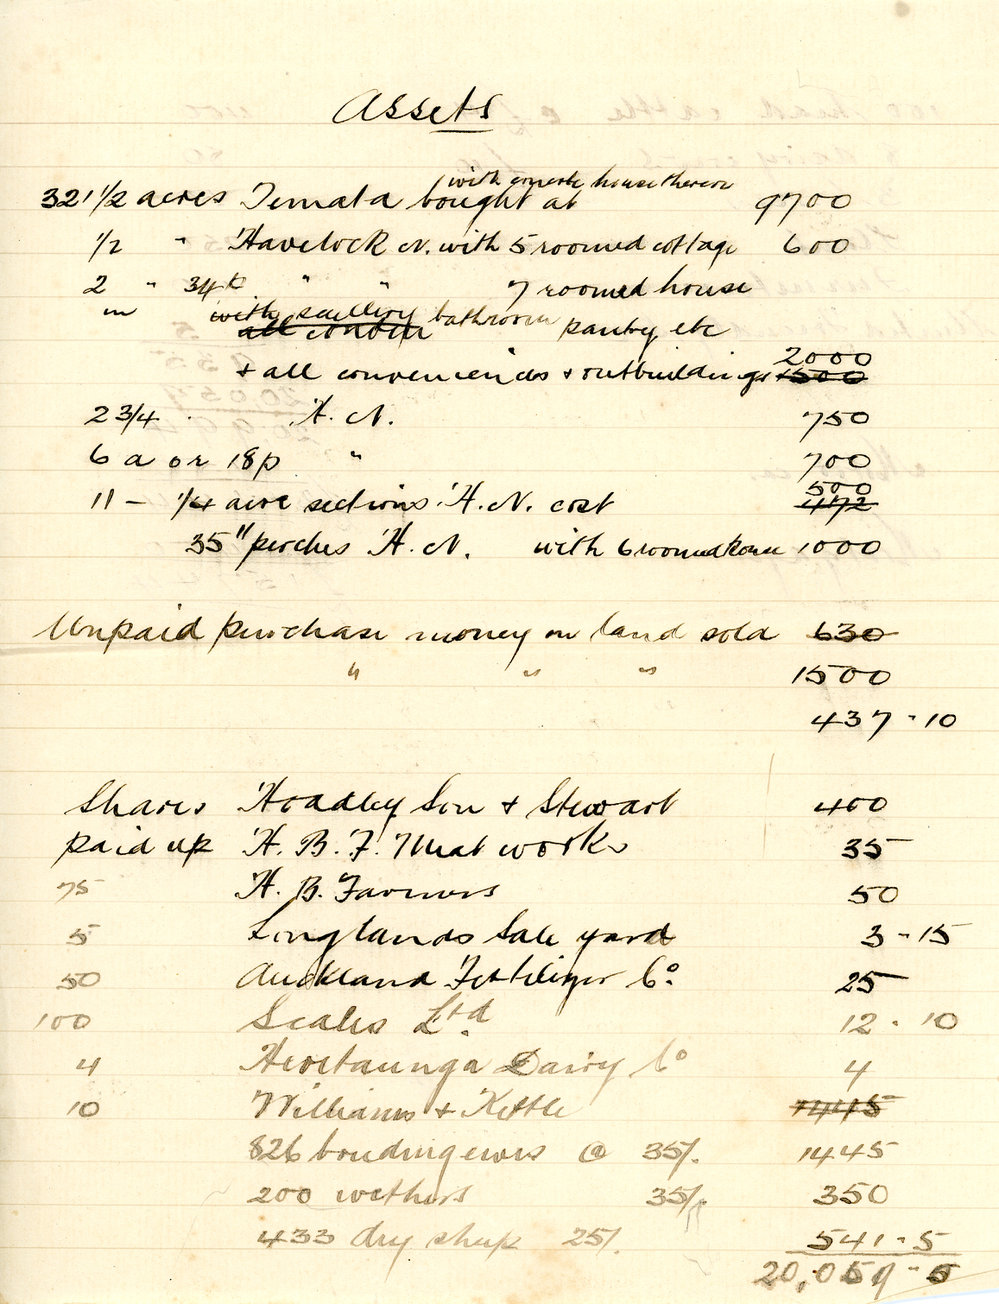 Assets
with concrete house thereon
321 1/2 acres Temata bought at 9700
1/2 " Havelock N. with 5 roomed cottage 600
2 " 34p " " 7 roomed house
with scullery bathroom pantry etc
+ all conveniences + outbuildings 2000 1500
2 3/4 " H. N. 750
6 a or 18p " 700
11 - 1/4 acre sections H. N. cost 500 472
35 " perches H. N. with 6 roomed house 1000
Unpaid purchase money on land sold 630
" " " 1500
437 - 10
Shares Hoadley Son & Stewart 400
paid up H. B. F. Meat works 35
75 H. B. Farmers 50
5 Longlands Sale yard 3 - 15
50 Auckland Fertilizer Co 25
100 Scales Ltd 12 - 10
4 Heretaunga Dairy Co 4
10 Williams & Kettle 1445
826 breeding ewes @ 35/. 1445
200 wethers 35/. 350
433 dry sheep 25/. 541 - 5
20,059 - 5